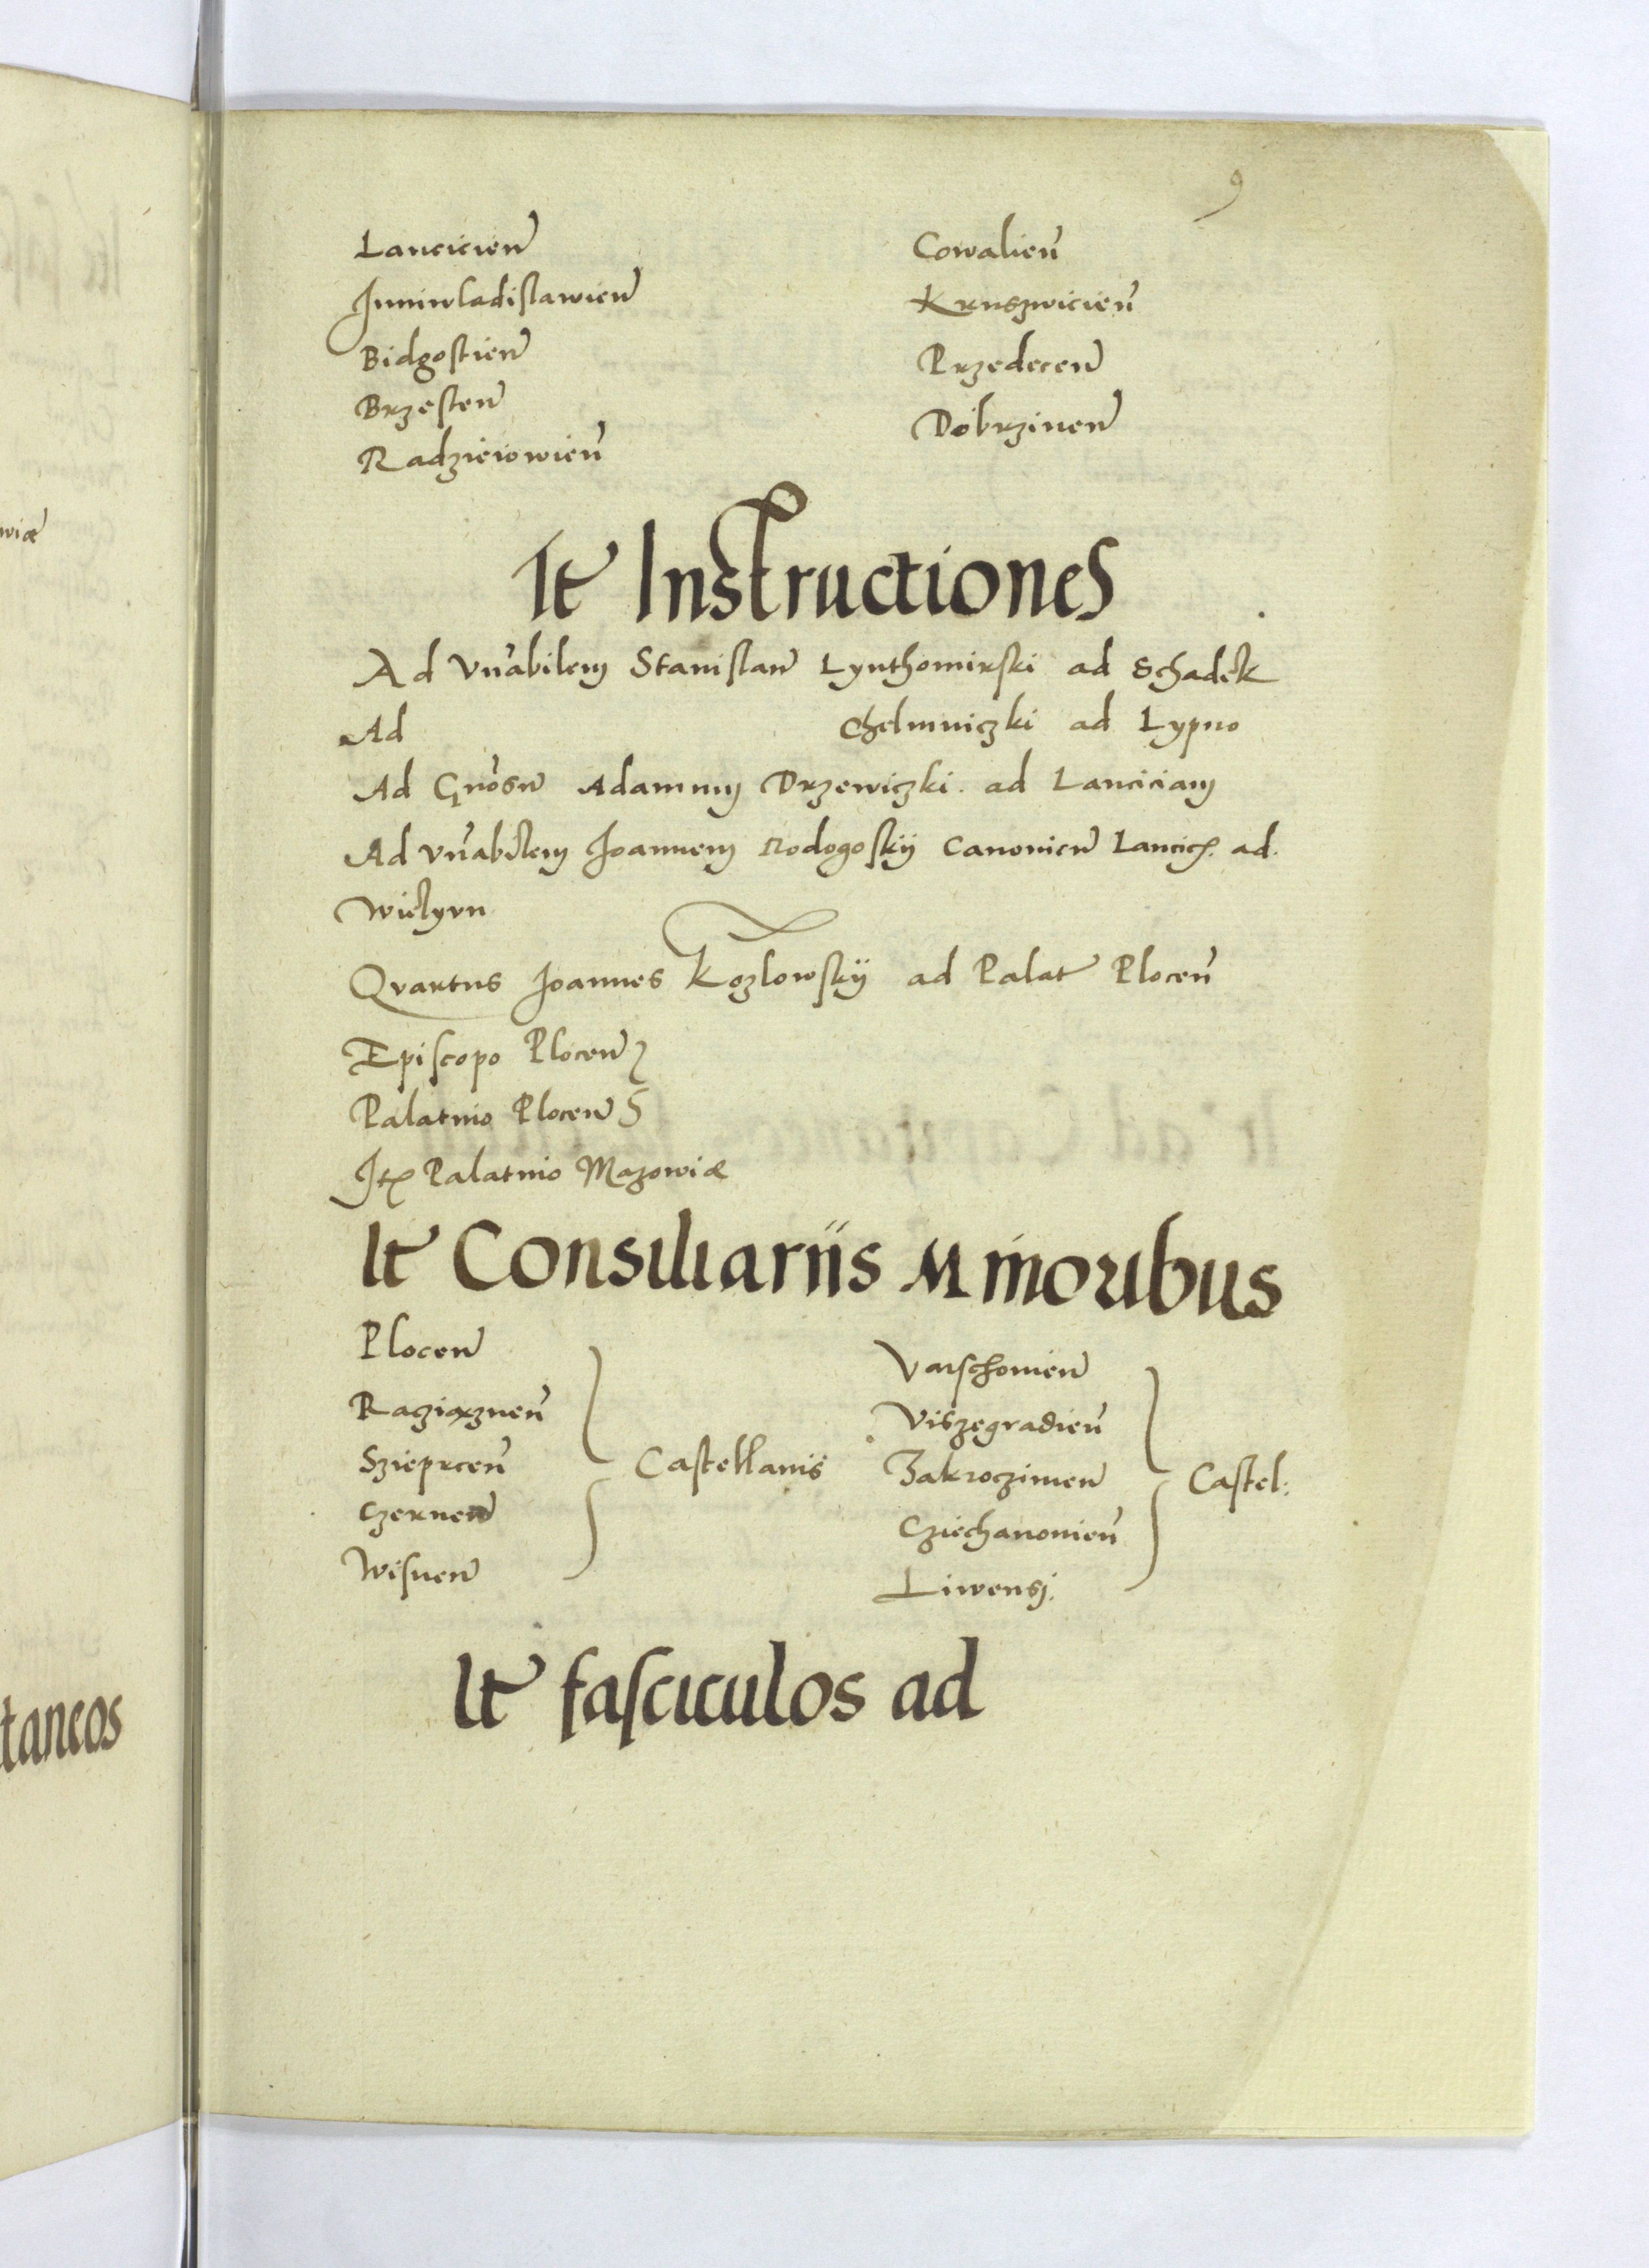 9
Lancicien̄
Juniwladislawien̄
Bidgostien̄
Brzesten̄
Radzieiowien̄
Cowalien̄
Kruszwicien̄
Przedecen̄
Dobrzinen̄
It Instructiones
Ad Vn̄abilem Stanislau̅ Lynthomirski ad Schadek
Ad Chelmniczki ad Lypno
Ad Gn̄osu̅ Adamum Drzewiczki ad Lanciciam
Ad Vn̄abilem Joannem Rodogoskÿ Canonicu̅ Lancic̄ ad
Wielyun
Qvartus Joannes Kozlowskÿ ad Palat Plocen̄
Episcopo Plocen̄
Palatino Plocen̄
Jt Palatino Mazowiæ
It Consiliariis Minoribus
Plocen̄
Raziąznen̄
Szieprcen̄
Czernen̄
Wisnen̄
Castellanis
Varschouien̄
Viszegradien̄
Zakroczimen̄
Cziechanouien̄
Liwensi.
Castel:
It fasciculos ad
wiæ
taneos